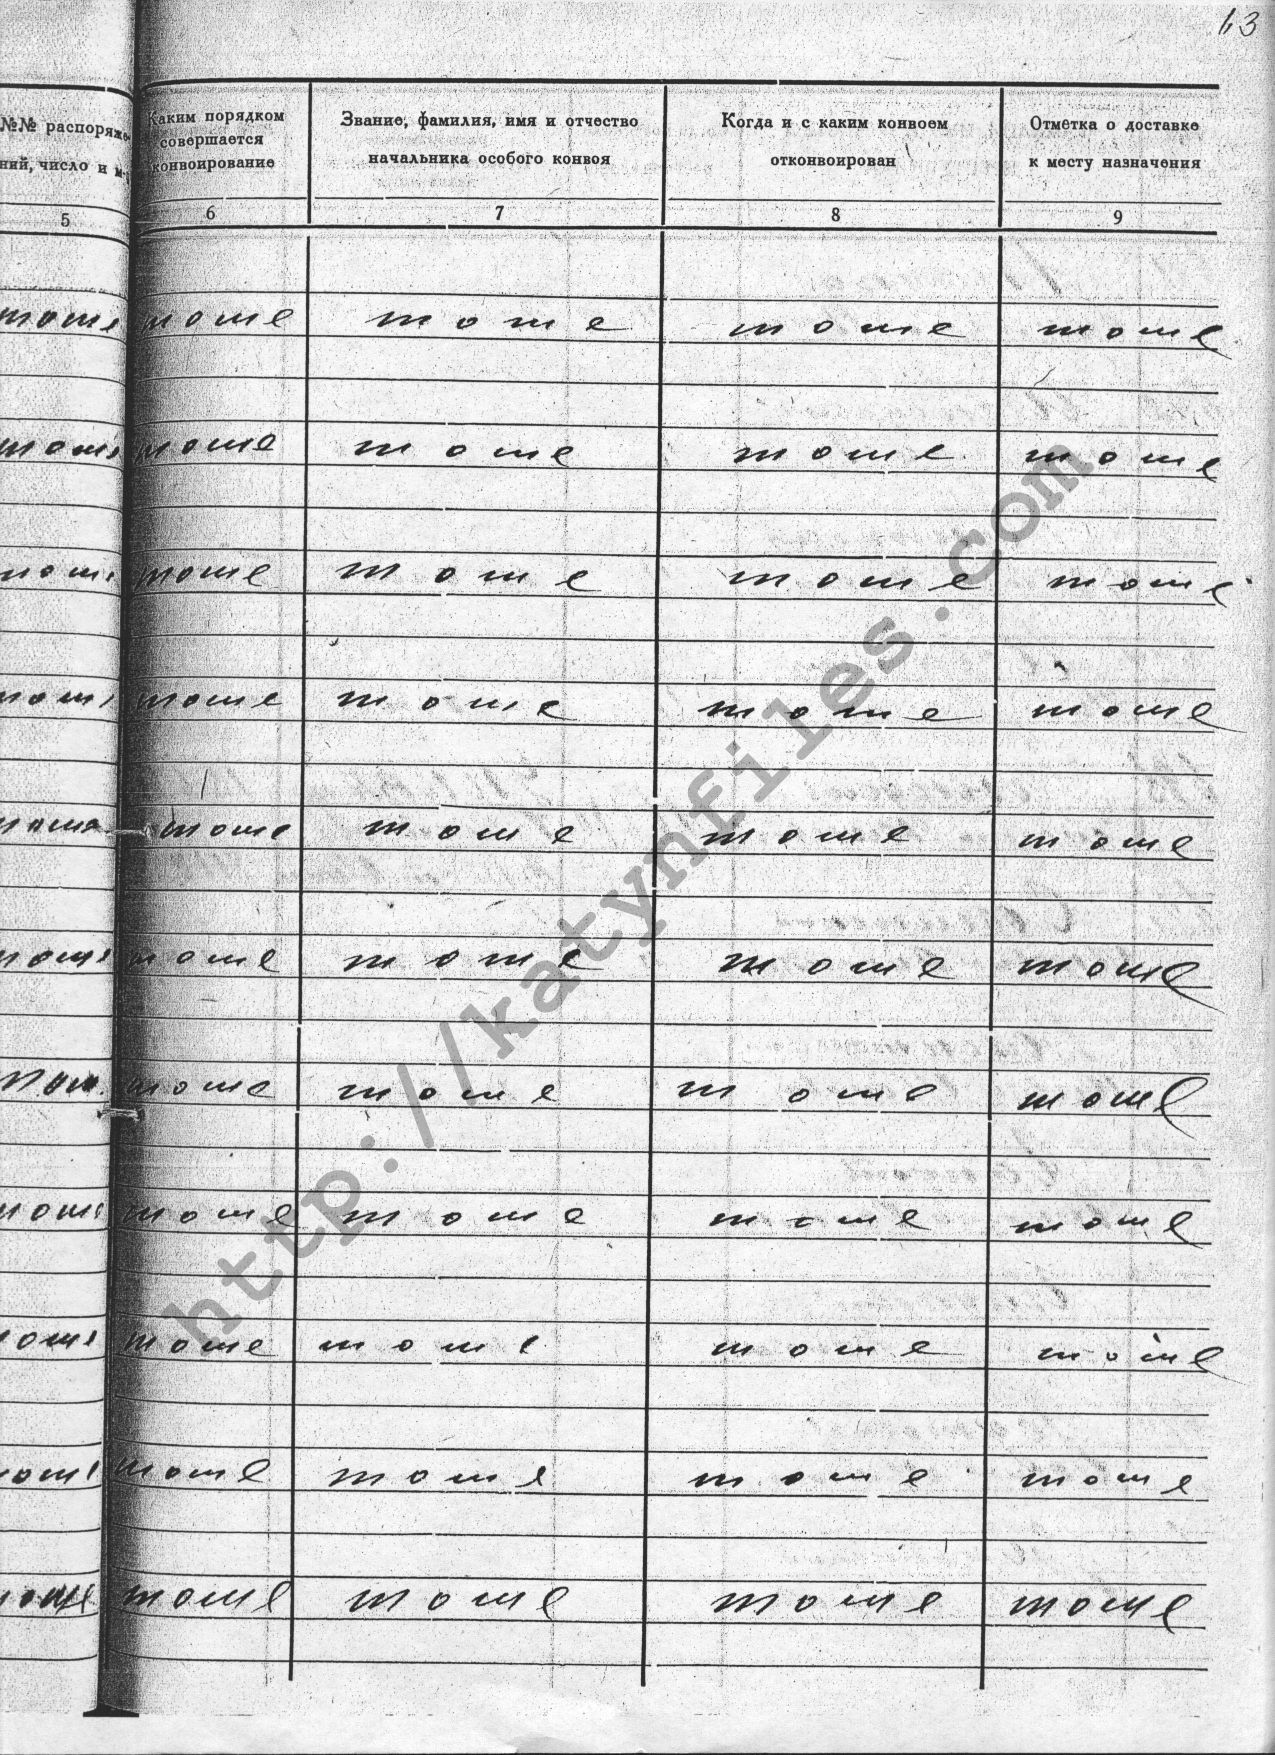 43
№№ распоряже-
ний, число и м.
Каким порядком
совершается
конвоирование
Звание, фамилия, имя и отчество
начальника особого конвоя
Когда и с каким конвоем
отконвоирован
Отметка о доставке
к месту назначения
5 6 7 8 9
тоже тоже тоже тоже тоже
тоже тоже тоже тоже тоже
тоже тоже тоже тоже тоже
тоже тоже тоже тоже тоже
тоже тоже тоже тоже тоже
тоже тоже тоже тоже тоже
тоже тоже тоже тоже тоже
тоже тоже тоже тоже тоже
тоже тоже тоже тоже тоже
тоже тоже тоже тоже тоже
тоже тоже тоже тоже тоже
http://katynfiles.com